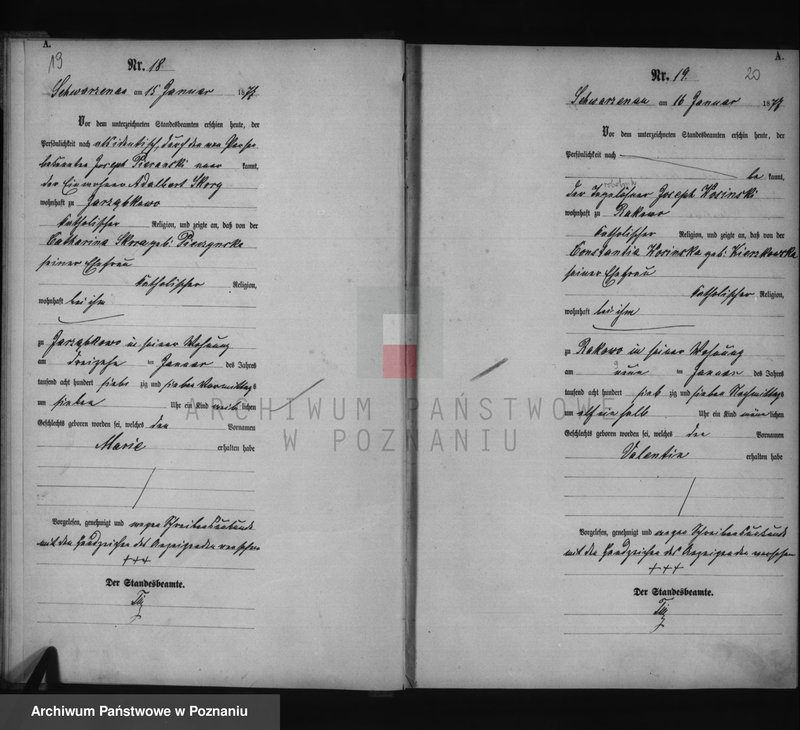 A.
19
Nr. 18.
Schwarzenau am 15 Januar 1877
Vor dem unterzeichneten Standesbeamten erschien heute, der
Persönlichkeit nach
Joseph kannt,
der Einwohner Adalbert Skory
wohnhaft zu Jarząbkowo
katholischer Religion, und zeigte an, daß von der
Catharina geb:
seiner Ehefrau
katholischer Religion,
wohnhaft bei ihm
zu Jarząbkowo in seiner Wohnung
am dreizehn ten Januar des Jahres
tausend acht hundert sieb zig und sieben Vormittags
um sieben Uhr ein Kind weib lichen
Geschlechts geboren worden sei, welches den Vornamen
Marie erhalten habe
Vorgelesen, genehmigt und wegen Schreibensunkunde
mit den Handzeichen des Anzeigenden versehen
+++
Der Standesbeamte.
A.
20
Nr. 19.
Schwarzenau am 16 Januar 1877
Vor dem unterzeichneten Standesbeamten erschien heute, der
Persönlichkeit nach
be kannt,
der Tagelöhner Joseph Kosinski
wohnhaft zu Rakowo
katholischer Religion, und zeigte an, daß von der
Constantia Kosinska geb:
seiner Ehefrau
katholischer Religion,
wohnhaft bei ihm
zu Rakowo in seiner Wohnung
am neun ten Januar des Jahres
tausend acht hundert sieb zig und sieben Nachmittags
um elf ein halb Uhr ein Kind männ lichen
Geschlechts geboren worden sei, welches den Vornamen
Valentin erhalten habe
Vorgelesen, genehmigt und wegen Schreibensunkunde
mit den Handzeichen des Anzeigenden versehen
+++
Der Standesbeamte.
ARCHIWUM PAŃSTWOWE
W POZNANIU
Archiwum Państwowe w Poznaniu